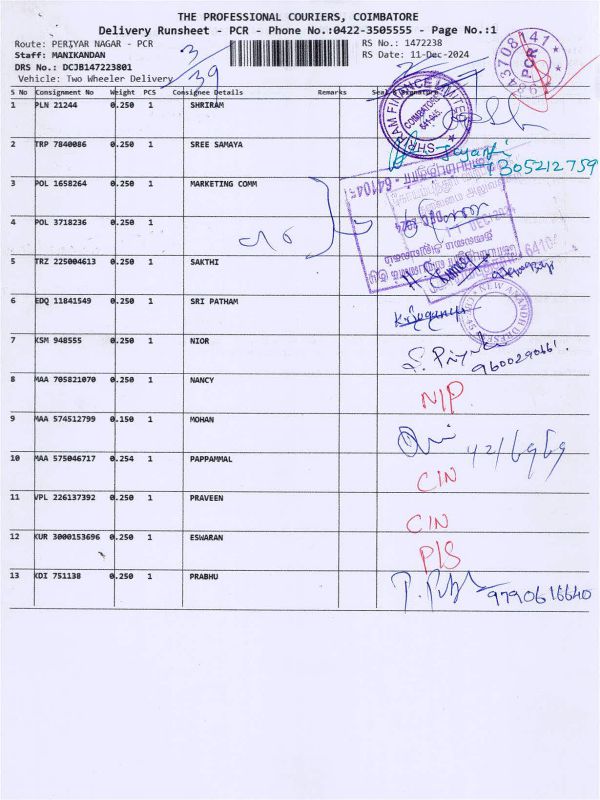 THE PROFESSIONAL COURIERS, COIMBATORE
Delivery Runsheet - PCR - Phone No.:0422-3505555 - Page No.:1
Route: PERIYAR NAGAR - PCR RS No.: 1472238
Staff: MANIKANDAN RS Date: 11-Dec-2024
DRS No.: DCJB147223801
Vehicle: Two Wheeler Delivery
3/39
43708141
PCR
S No Consignment No Weight PCS Consignee Details Remarks
1 PLN 21244 0.250 1 SHRIRAM
SHRIRAM FINANCE LIMITED
COIMBATORE
641045
2 TRP 7840086 0.250 1 SREE SAMAYA
7305212759
3 POL 1658264 0.250 1 MARKETING COMM
4 POL 3718236 0.250 1
5 TRZ 225004613 0.250 1 SAKTHI
6 EDQ 11841549 0.250 1 SRI PATHAM
NEW ANANDH DRESSES
7 KSM 948555 0.250 1 NIOR
9600290661.
8 MAA 705821070 0.250 1 NANCY N/P
9 MAA 574512799 0.150 1 MOHAN
10 MAA 575046717 0.254 1 PAPPAMMAL CIN
11 VPL 226137392 0.250 1 PRAVEEN CIN
12 KUR 3000153696 0.250 1 ESWARAN P/S
13 KDI 751138 0.250 1 PRABHU 9790616640